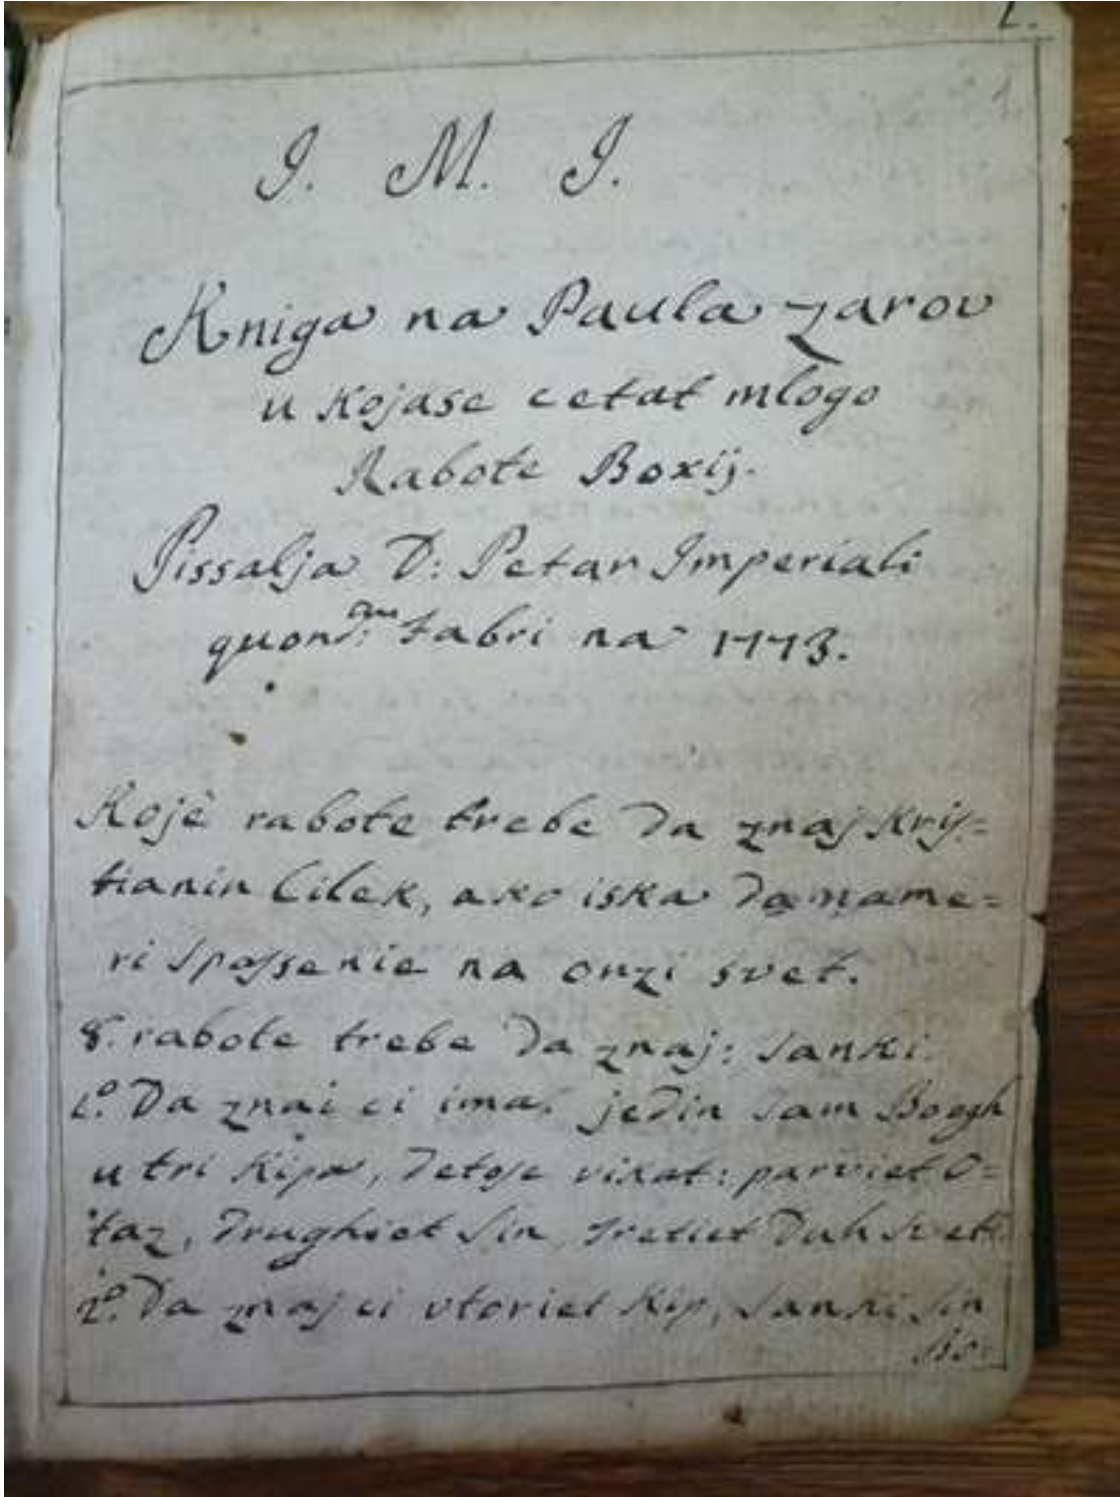 1.
1.
J. M. J.
Kniga na Paula zarov
u kojase cetat mlogo
Rabote Boxij.
Pissalja D: Petar Imperiali
quond:am Fabri na 1773.
Kojè rabote trebe da znaj Kris=
tianin Cilek, ako iska da name=
ri Spassenie na onzi svet.
8. rabote trebe da znaj: sanki.
1.º Da znai ci ima jedin sam Boogh
u tri Kipa, detose vikat: parviet O=
taz, drughiet Sin, tretiet Duh Sveti.
2.º Da znaj ci vtoriet Kip, sanki Sin
Bo=